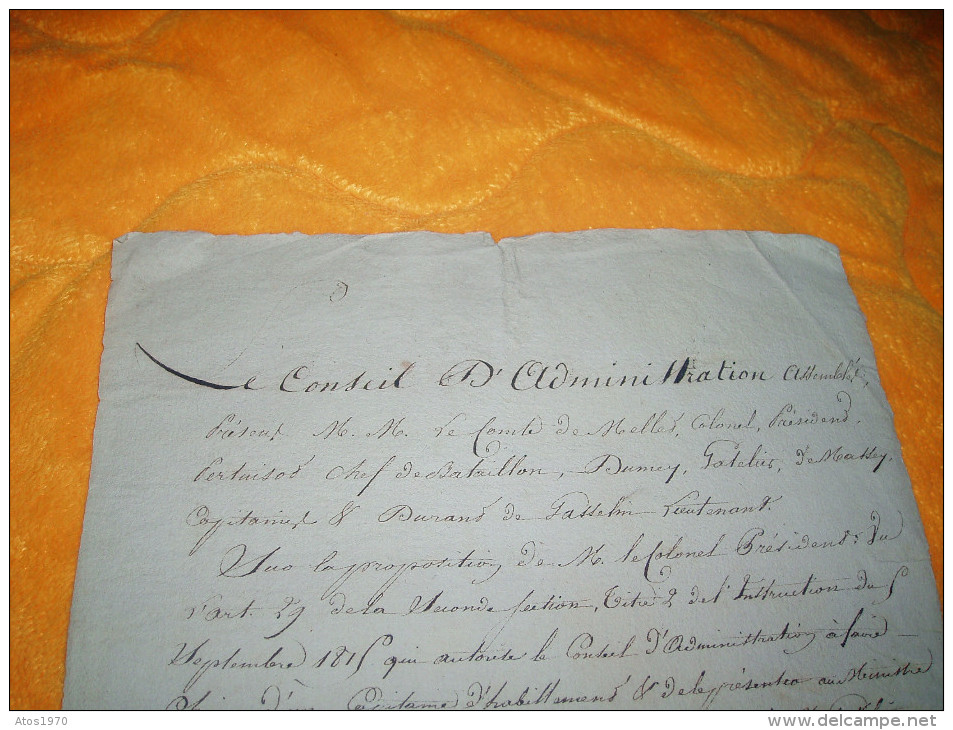 Le Conseil D'Administration Assemblé,
Présens M. M. Le Comte de Melles, Colonel, Président,
Pertuisot Chef de Bataillon, Dumey, Gatelier, De Massey,
Capitaines & Durand de Gasselin Lieutenant.
Sur la proposition de M. le Colonel Président; Vu
l'art 29 de la Seconde Section, Titre 2 de l'Instruction du 5
Septembre 1815 qui autorise le Conseil D'Administration à faire
Choix d'un Capitaine d'habillement & de le présenter au Ministre
Atos1970
www.delcampe.net